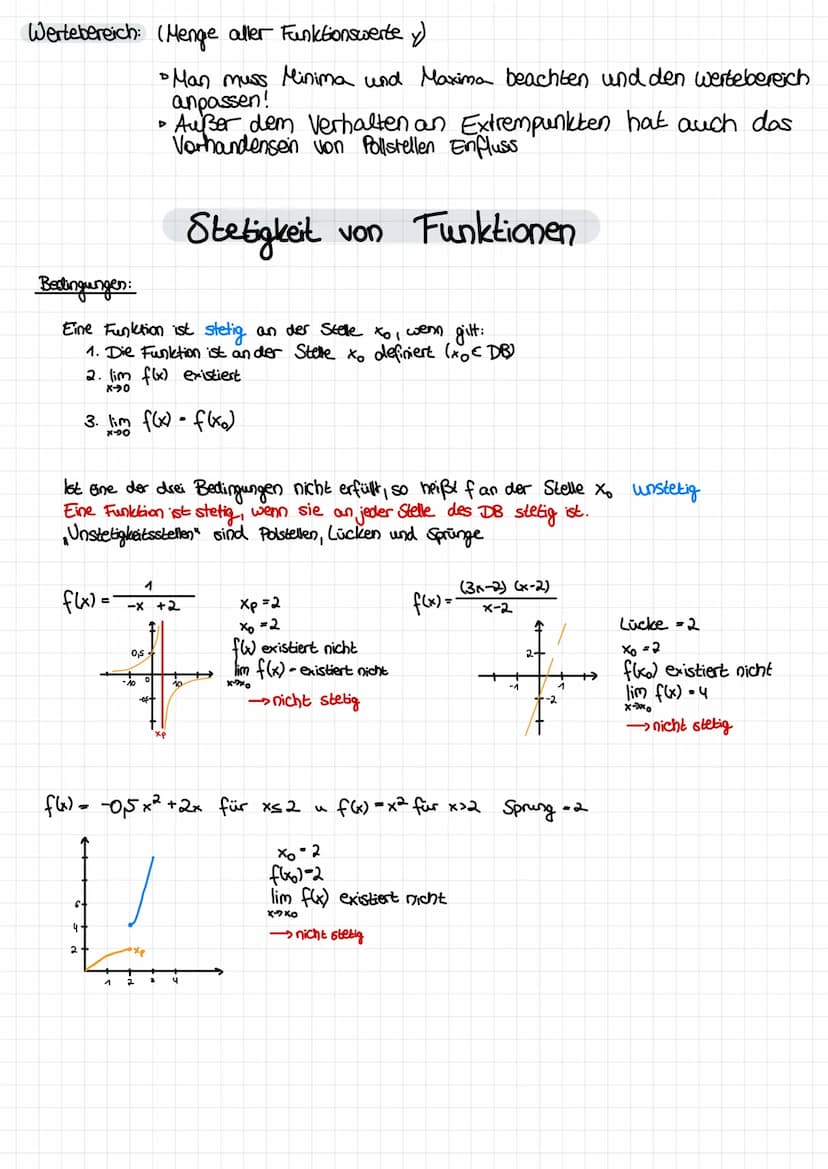 Wertebereich: (Menge aller Funktionswerte y)
▹ Man muss Minima und Maxima beachten und den Wertebereich
anpassen!
▹ Außer dem Verhalten an Extrempunkten hat auch das
Vorhandensein von Pollstellen Einfluss
Stetigkeit von Funktionen
Bedingungen:
Eine Funktion ist stetig an der Stelle x₀, wenn gilt:
1. Die Funktion ist an der Stelle x₀ definiert (x₀ ∈ DB)
2. lim f(x) existiert
x→0
3. lim f(x) = f(x₀)
x→0
Ist eine der drei Bedingungen nicht erfüllt, so heißt f an der Stelle x₀ unstetig
Eine Funktion ist stetig, wenn sie an jeder Stelle des DB stetig ist.
„Unstetigkeitsstellen" sind Polstellen, Lücken und Sprünge
f(x) = 1 / (-x +2)
xₚ = 2
x₀ = 2
f(x) existiert nicht
lim f(x) = existiert nicht
x→x₀
→ nicht stetig
0,5
-10 0 10
xₚ
f(x) = (3x-2) (x-2) / x-2
Lücke = 2
x₀ = 2
f(x₀) existiert nicht
lim f(x) = 4
x→x₀
→ nicht stetig
2
-1 1
-2
f(x) = -0,5x² + 2x für x≤2 u f(x) = x² für x>2 Sprung = 2
x₀ = 2
f(x₀) = 2
lim f(x) existiert nicht
x→x₀
→ nicht stetig
6
4
2
xₚ
1 2 3 4